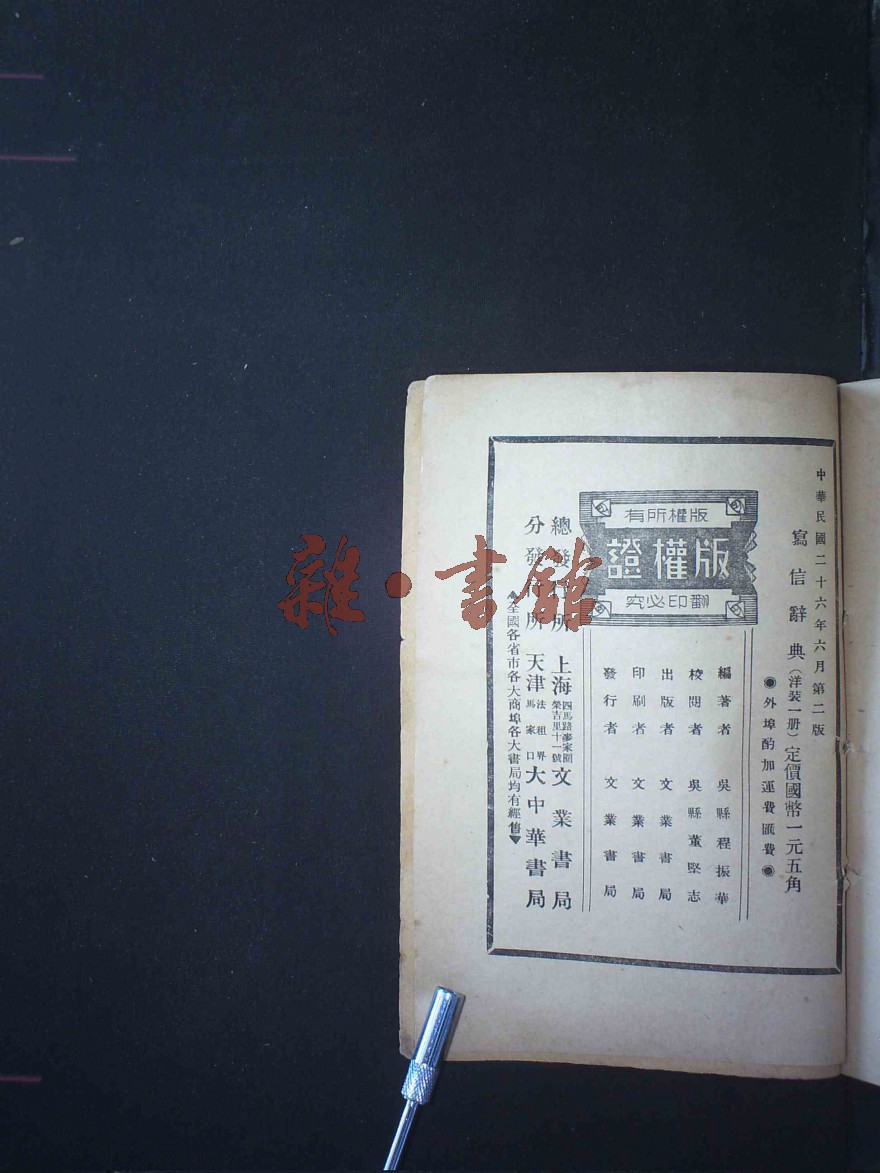 中華民國二十六年六月第二版
寫信辭典(洋裝一册)定價國幣一元五角
◉外埠酌加運費匯費◉
版權所有
版權證
翻印必究
編著者 吳縣程振華
校閱者 吳縣董堅志
出版者 文業書局
印刷者 文業書局
發行者 文業書局
總發行所 上海四馬路麥家圈榮吉里十一號文業書局
分發行所 天津法租界馬家口大中華書局
▲全國各省市各大商埠各大書局均有經售▼
雜·書館